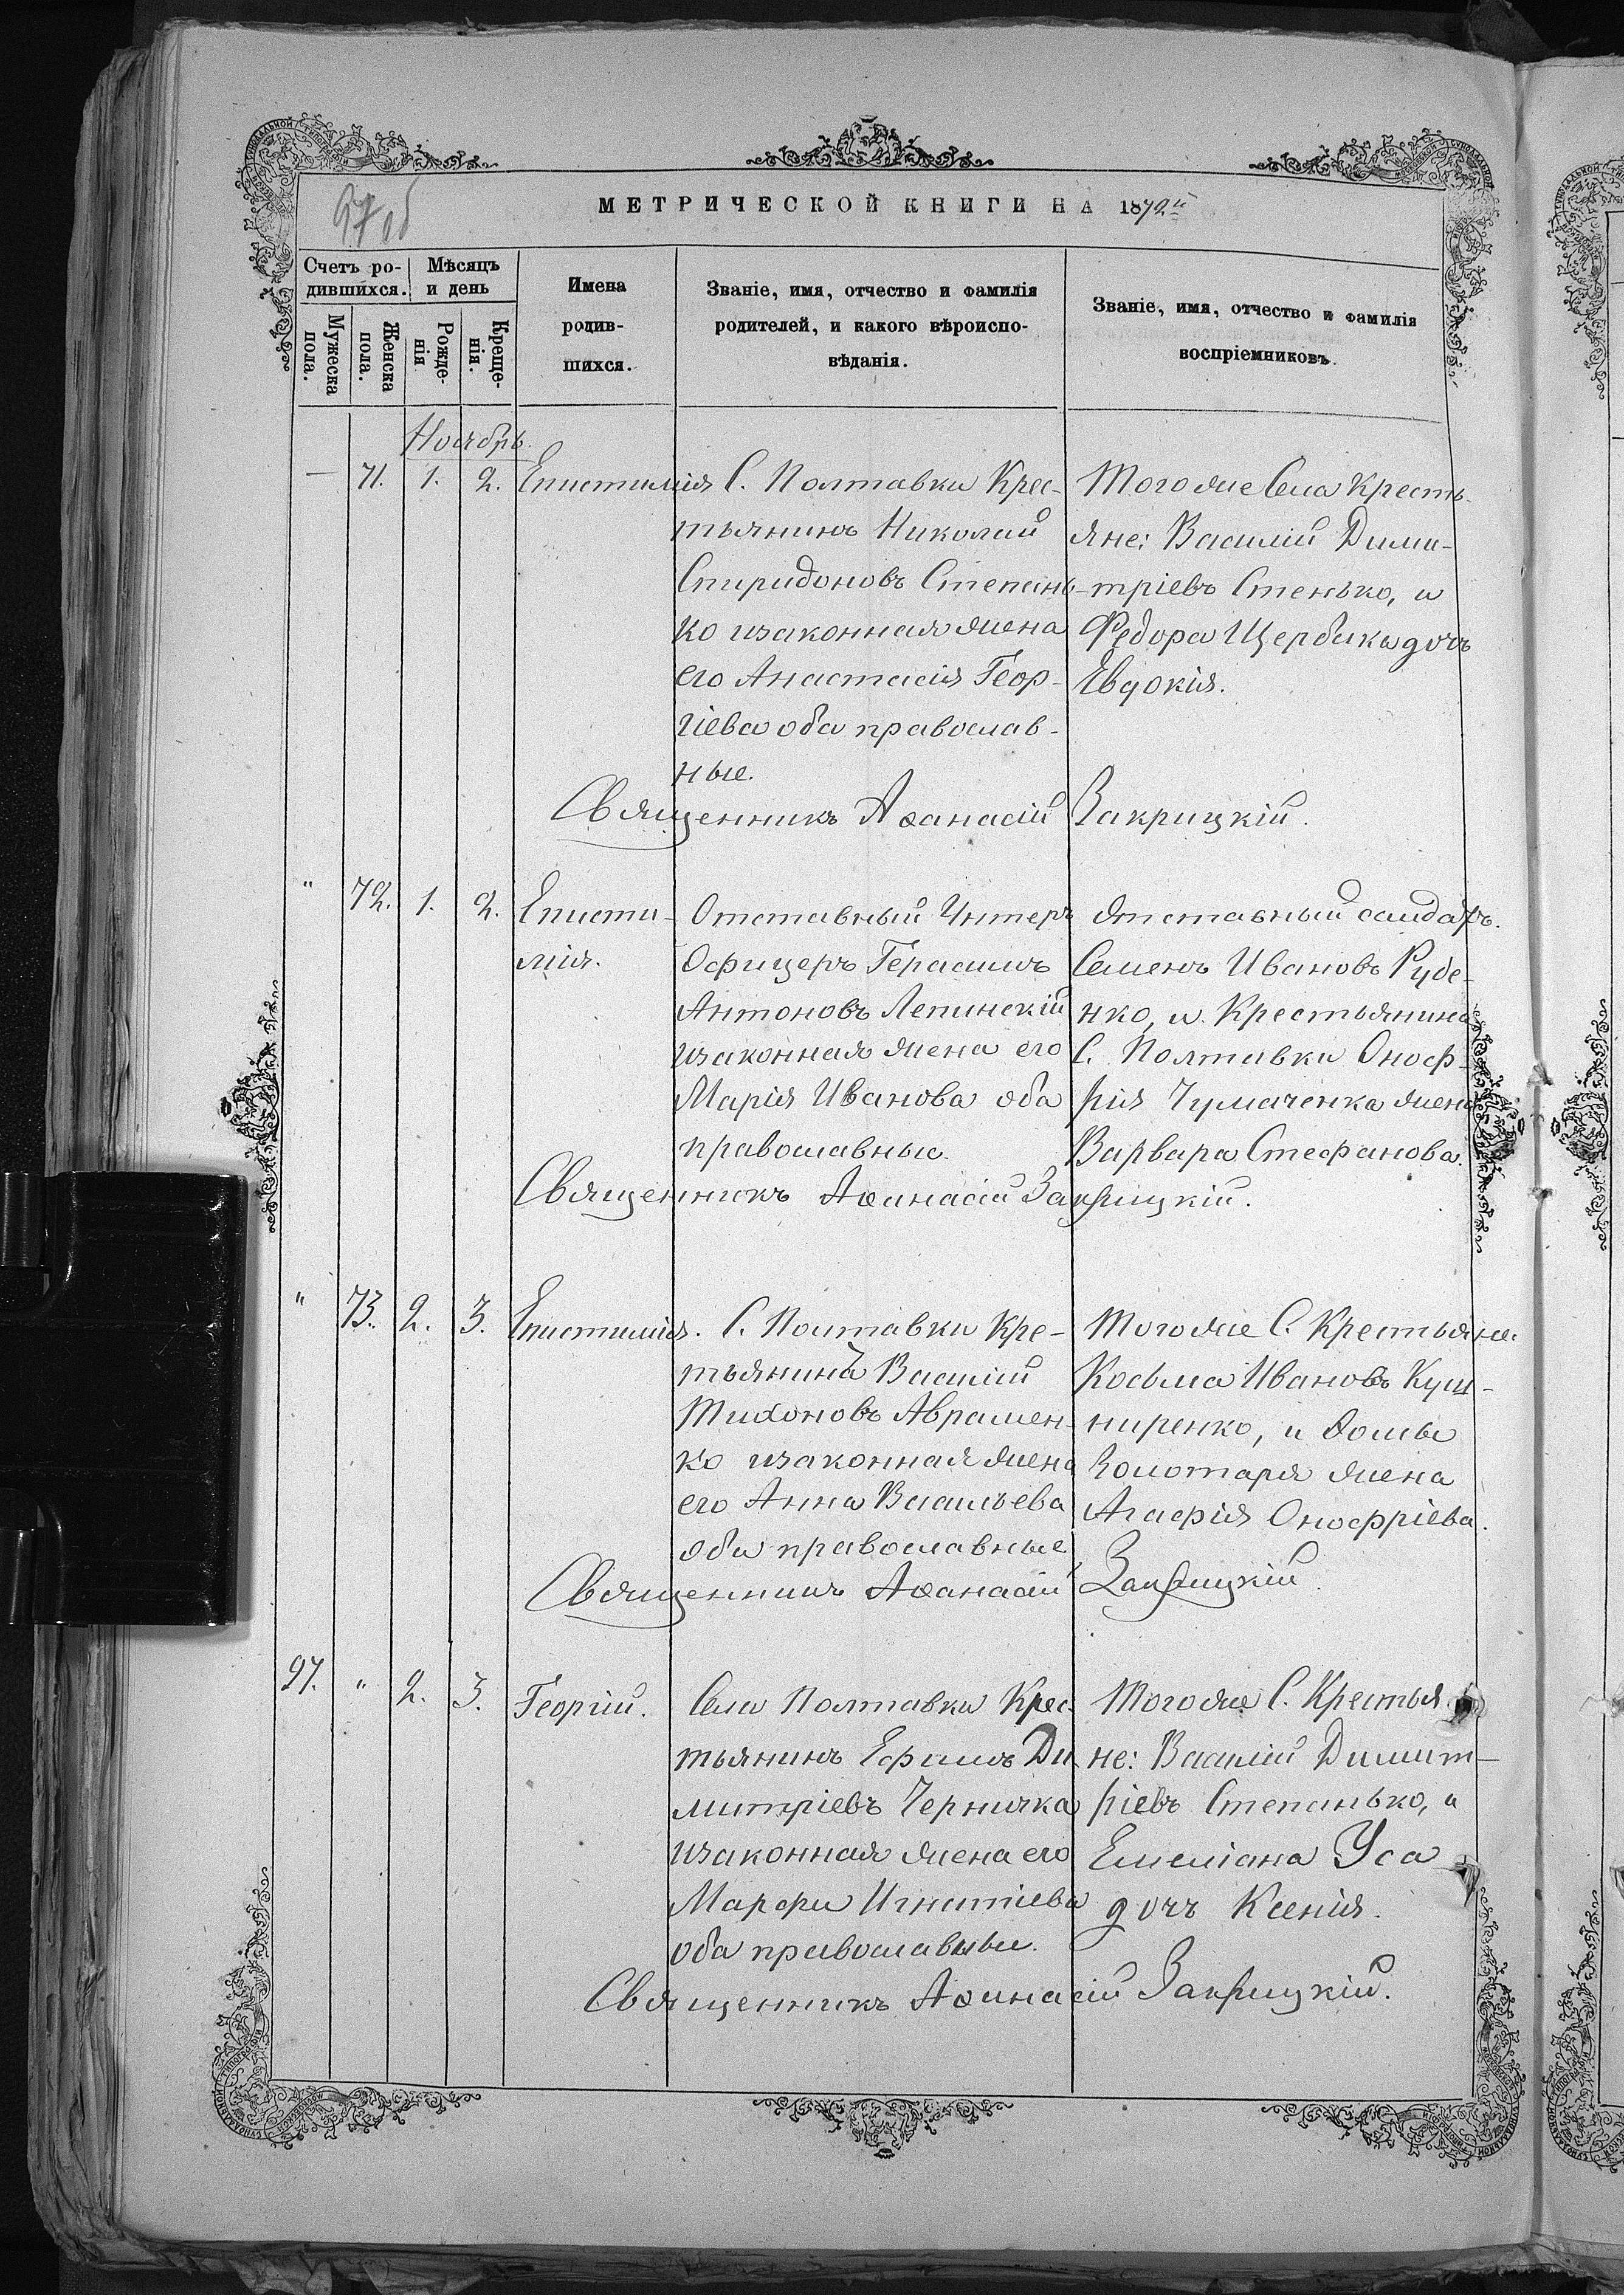 97 об
МЕТРИЧЕСКОЙ КНИГИ НА 1872й
Счетъ ро-
дившихся.
Мѣсяцъ
и день
Имена
родив-
шихся.
Званіе, имя, отчество и фамилія
родителей, и какого вѣроиспо-
вѣданія.
Званіе, имя, отчество и фамилія
воспріемниковъ.
Мужеска
пола.
Женска
пола.
Рожде-
нія
Креще-
нія.
Ноябрь.
— 71. 1. 2. Епистимія
С. Полтавки Крес-
тьянинъ Николай
Спиридоновъ Степань-
ко изаконная жена
его Анастасія Геор-
гіева оба православ-
ные.
Тогоже Села Кресть-
яне: Василій Дими-
тріевъ Стенько, и
Федора Щербакы дочъ
Евдокія.
Священникъ Аѳанасій Закрицкій.
" 72. 1. 2. Еписти-
мія.
Отставный Унтеръ
Офицеръ Герасимъ
Антоновъ Лепинскій
изаконная жена его
Марія Иванова оба
православные.
Отставный салдатъ.
Семенъ Ивановъ Рубе-
нко, и Крестьянина
С. Полтавки Оноф-
рія Чумаченка жена
Варвара Стефанова.
Священникъ Аѳанасій Закрицкій.
" 73. 2. 3. Епистимія.
С. Полтавки Кре-
тьянинъ Василій
Тихоновъ Авраmен-
ко изаконная жена
его Анна Васильева
оба православные
Тогоже С. Крестьяне:
Косьма Ивановъ Куш-
ниренко, и Ѳомы
Золотаря жена
Агафія Онофріева.
Священникъ Аѳанасій Закрицкій.
27. " 2. 3. Георгій.
Села Полтавки Крес-
тьянинъ Ефимъ Ди-
митріевъ Чернячка
изаконная жена его
Марфа Игнатіева
оба православные.
Тогоже С. Крестья
не: Василій Димит-
ріевъ Степанько, и
Емеліана Уса
дочъ Ксенія.
Священникъ Аѳанасій Закрицкій.